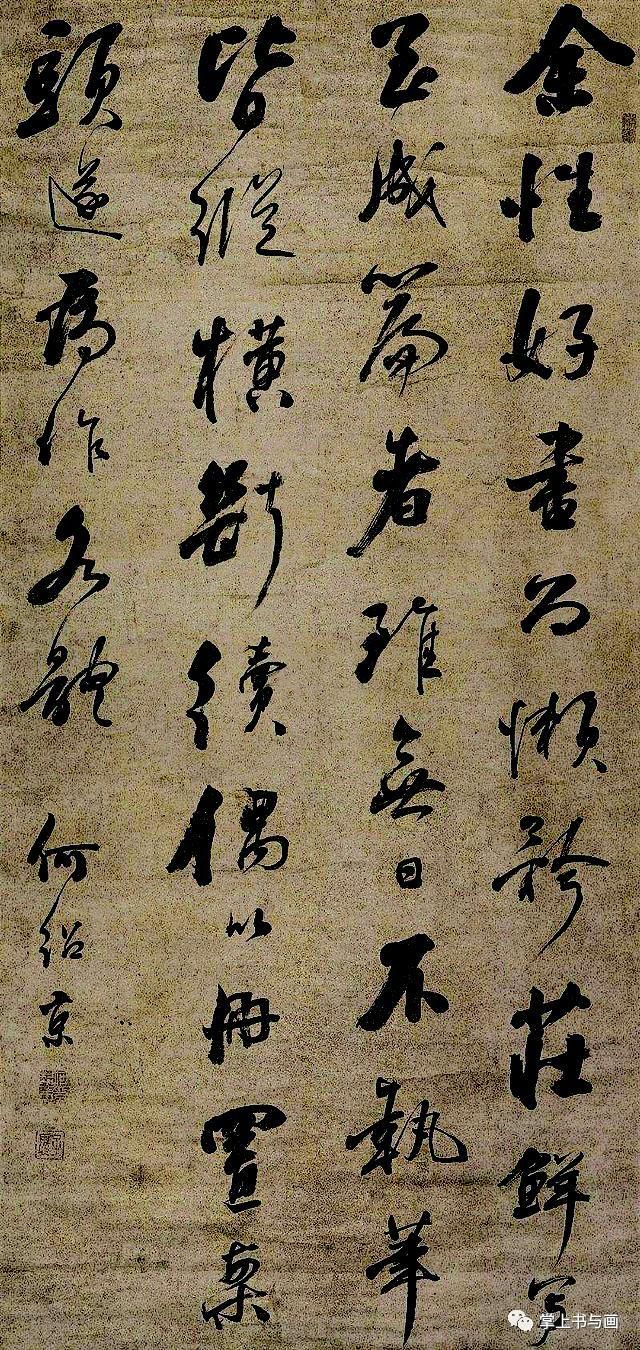 余性好書而懶矜莊鮮寫
至成篇者雖無日不執筆
皆縱橫斷續偶以冊置案
頭遂為作各體
何紹京
掌上书与画